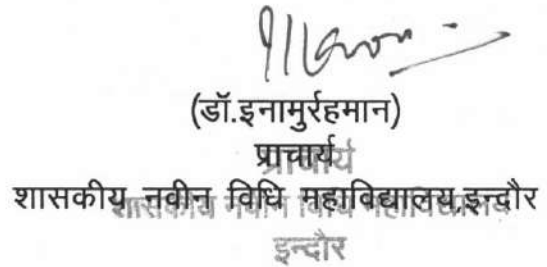 (डॉ.इनामुर्रहमान)
प्राचार्य
प्राचार्य
शासकीय नवीन विधि महाविद्यालय,इन्दौर
शासकीय नवीन विधि महाविद्यालय
इन्दौर